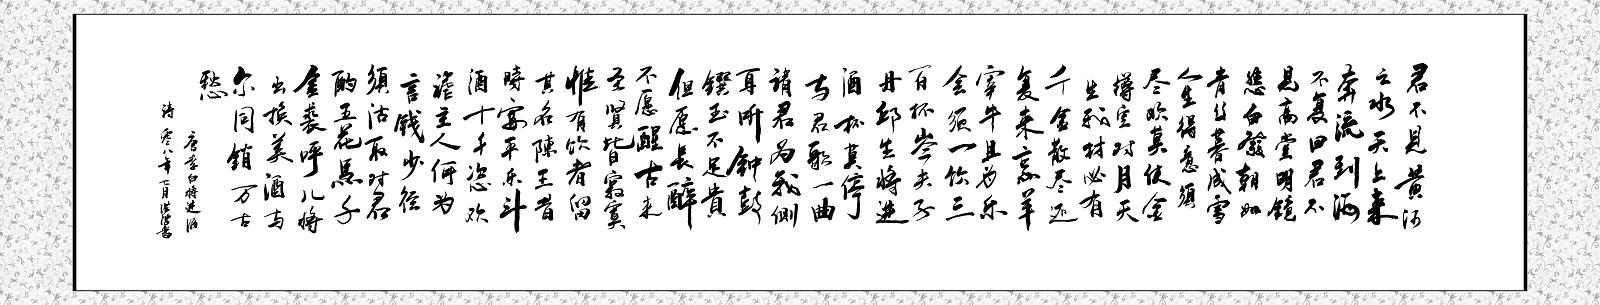 君不见黄河
之水天上来
奔流到海
不复回君不
见高堂明镜
悲白发朝如
青丝暮成雪
人生得意须
尽欢莫使金
樽空对月天
生我材必有
千金散尽还
复来烹羊
宰牛且为乐
会须一饮三
百杯岑夫子
丹邱生将进
酒杯莫停
与君歌一�
诸君为我侧
耳听钟鼓
馔玉不足贵
但愿长醉
不愿醒古来
圣贤皆寂寞
惟有饮者留
其名陈王昔
时宴平乐斗
酒十千恣欢
谑主人何为
言钱少径
须沽取对君
酌五花马千
金裘呼儿将
出换美酒与
尔同销万古
愁
唐李白将进酒
诗 零八年